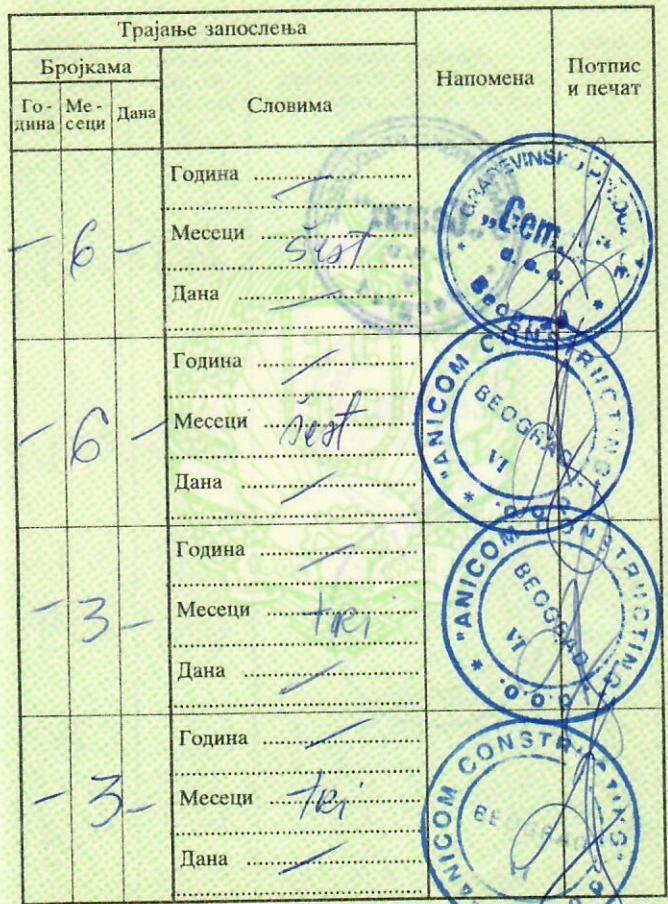 Трајање запослења
Бројкама
Словима
Напомена
Потпис
и печат
Го-
дина
Ме-
сеци
Дана
- 6 -
Година
Месеци šest
Дана
"Gem
d.o.o.
Beograd
- 6 -
Година
Месеци šest
Дана
"ANICOM CONSTRUCTING"
BEOGRAD
VI
d.o.o.
- 3 -
Година
Месеци tri
Дана
"ANICOM CONSTRUCTING"
BEOGRAD
VI
d.o.o.
- 3 -
Година
Месеци tri
Дана
ANICOM CONSTRUCTING"
BEOGRAD